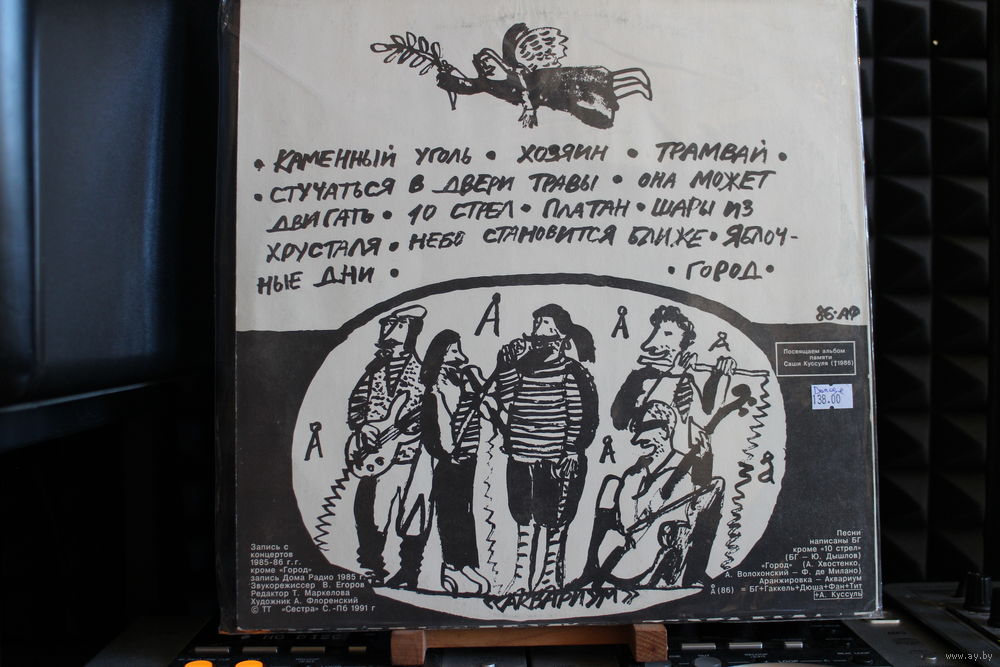 • КАМЕННЫЙ УГОЛЬ • ХОЗЯИН • ТРАМВАЙ •
• СТУЧАТЬСЯ В ДВЕРИ ТРАВЫ • ОНА МОЖЕТ
ДВИГАТЬ • 10 СТРЕЛ • ПЛАТАН • ШАРЫ ИЗ
ХРУСТАЛЯ • НЕБО СТАНОВИТСЯ БЛИЖЕ • ЯБЛОЧ-
НЫЕ ДНИ • • ГОРОД •
86·АФ
Å
Å
Å
Å
Å
Å
Посвящаем альбом
памяти
Саши Куссуля (†1986)
138.00
Запись с
концертов
1985-86 г.г.
кроме «Город»
запись Дома Радио 1985 г.
Звукорежиссер В. Егоров
Редактор Т. Маркелова
Художник А. Флоренский
© ТТ «Сестра» С.-Пб 1991 г
«АКВАРИУМ»
Песни
написаны БГ
кроме «10 стрел»
(БГ – Ю. Дышлов)
«Город» (А. Хвостенко,
А. Волохонский – Ф. де Милано)
Аранжировка – Аквариум
Å (86) = БГ+Гаккель+Дюша+Фан+Тит
+А. Куссуль
www.ay.by